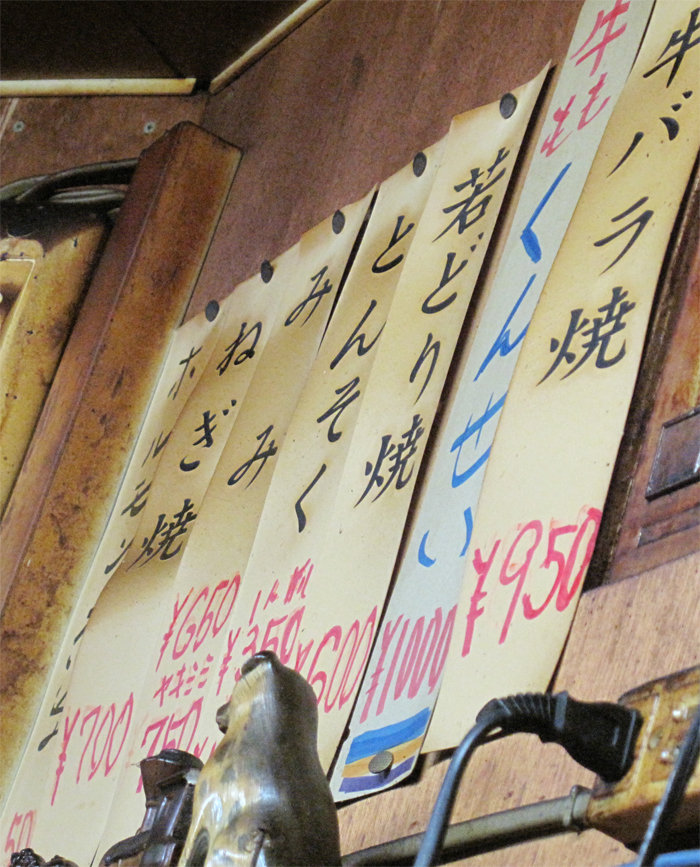 牛バラ焼
¥950
牛もも
くんせい
¥1000
若どり焼
¥600
とんそく
1人前
¥350
みみ
¥650
ヤキミミ
750
ねぎ焼
¥700
ホルモン
50